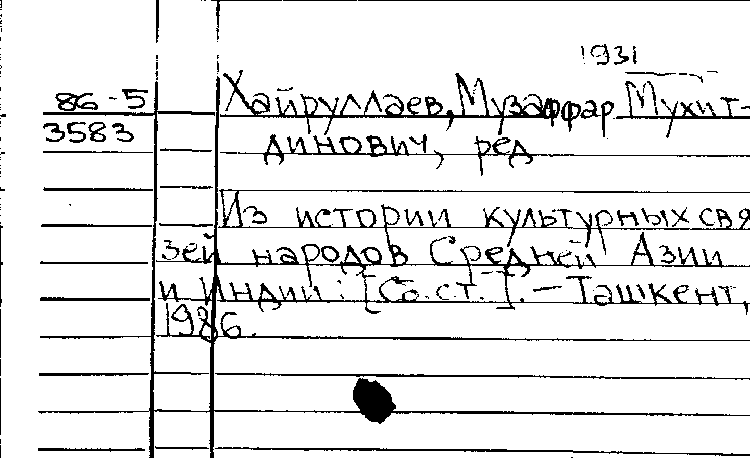 1931
86-5 Хайруллаев, Музаффар Мухит-
3583 динович, ред
Из истории культурных свя
зей народов Средней Азии
и Индии: [Сб. ст.]. - Ташкент,
1986.